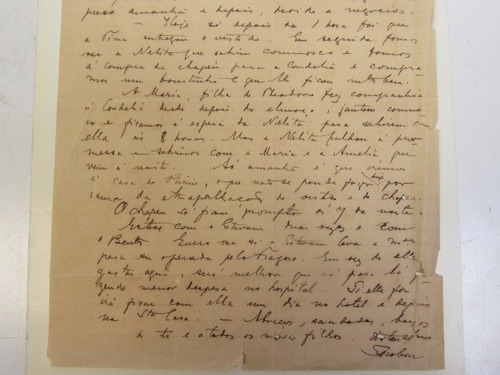 preso amanhã e depois, devido a negocios.
— Hoje só depois da 1 hora foi que
a Tina entregou o vestido. Em seguida fomos
ver a Nelita que sahiu comnosco e fomos
á compra de chapéu para a Cordelia e compra-
mos um bonitinho e que lhe ficou mto bem.
A Maria, filha do Theodoro fez companhia
á Cordelia desde depois do almoço, jantou comnos-
co e ficamos á espera da Nelita para sahirem
ella ás 8 horas. Mas a Nelita faltou á pro-
messa e sahimos com a Maria e a Amelia, que
veiu á noite. Só amanhã é que iremos
á casa do, o que não se ponde fazer hoje por
causa da atrapalhação do vestido e do chapeu.
O chapeu só ficou prompto ás 7 da noite.
Estive com o Estevam duas vezes e com
o Bento. Quero ver si o Estevam leva a
para ser operada pelo Fragoso. Em vez de
gastar aqui, será melhor que vá para lá
fazendo menor despesa no hospital. Si elle for
irá ficar com ella um dia no hotel e depois
na Sta Casa. — Abraços, saudades, beijos
a te e a todos os nossos filhos. Do teu
Escobar